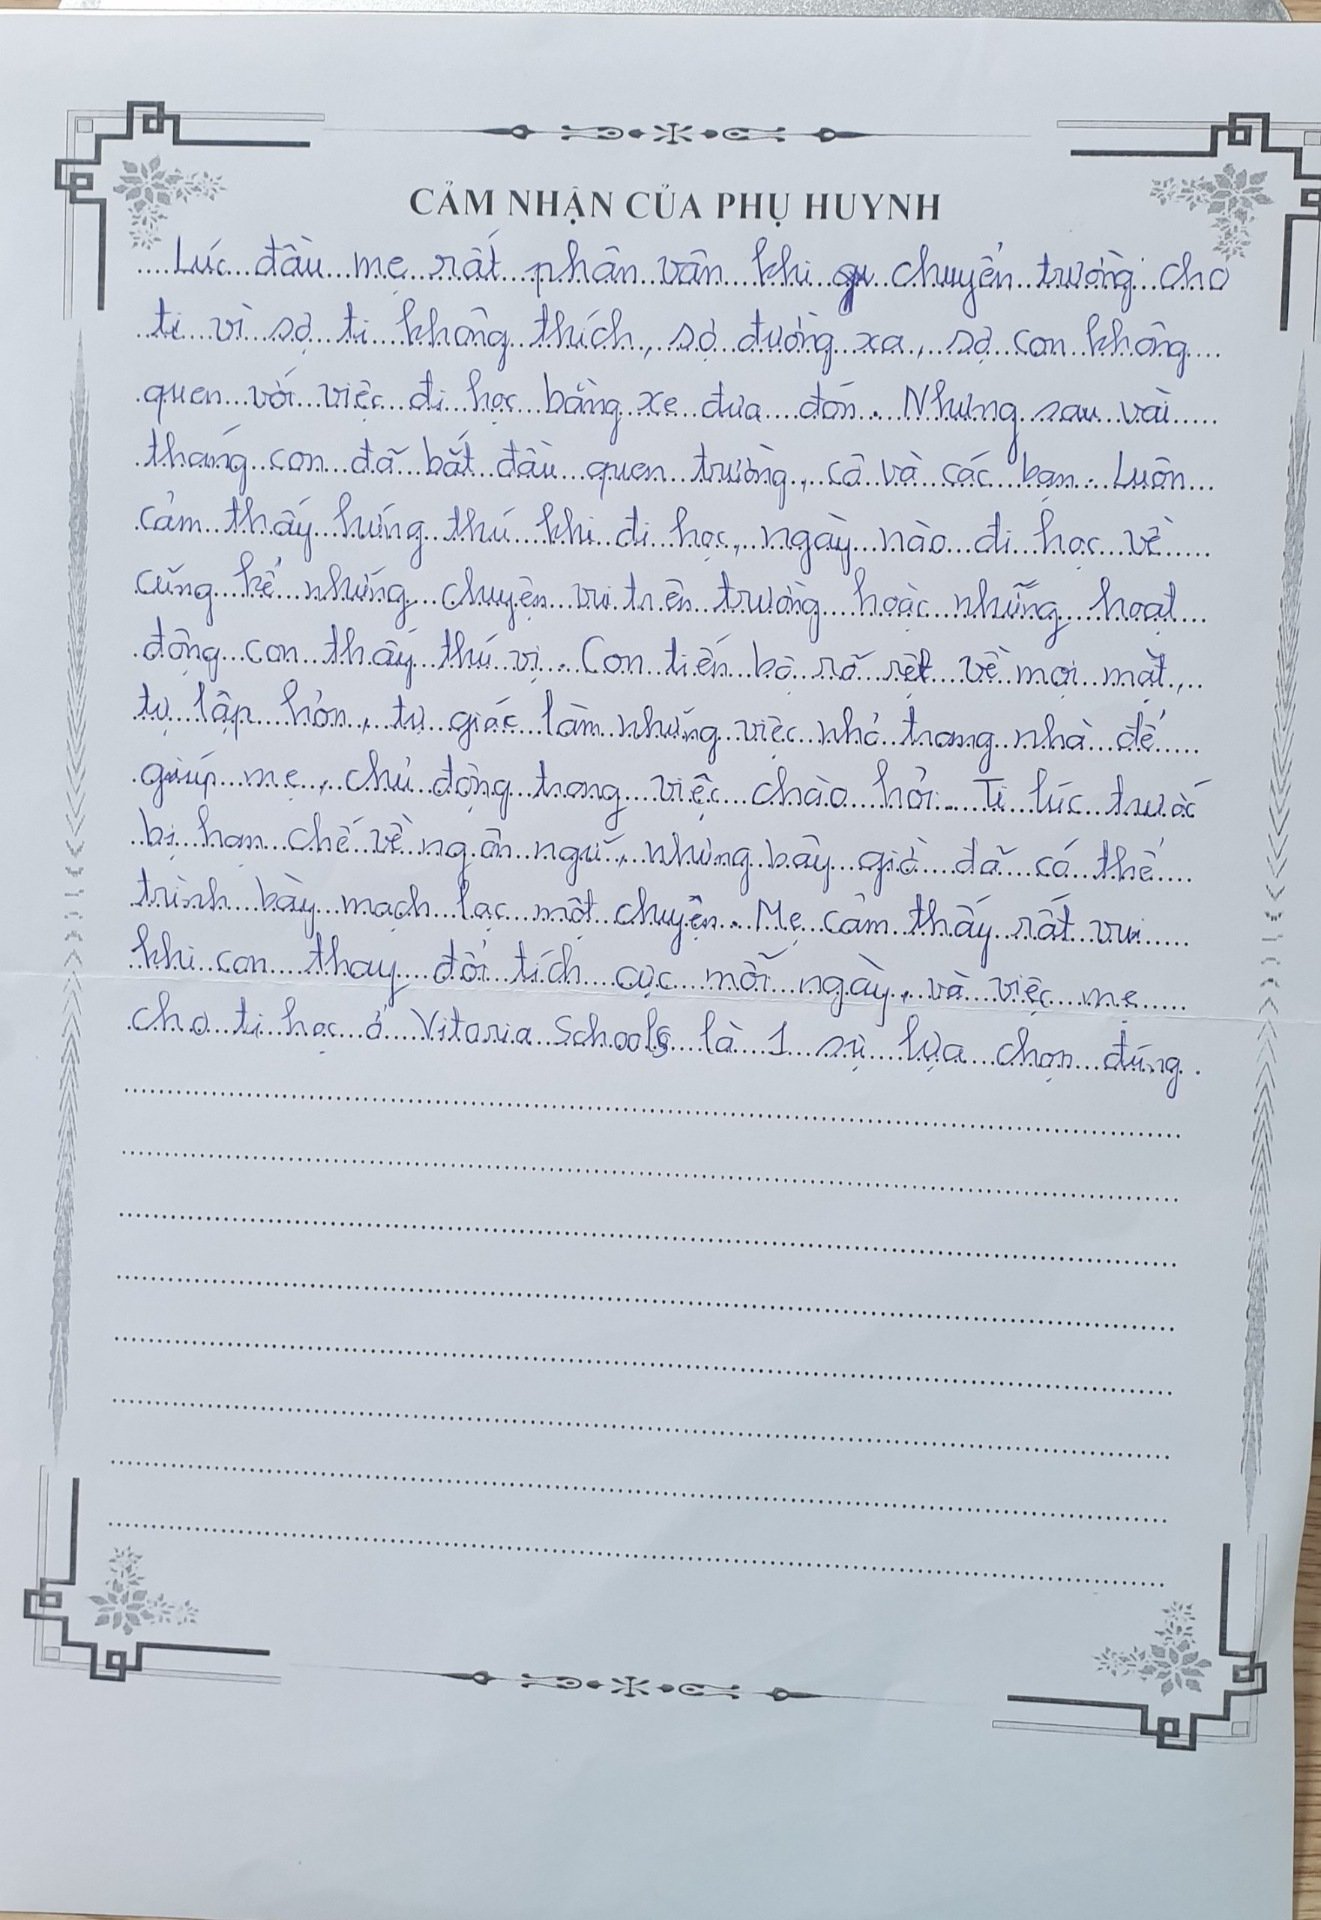 CẢM NHẬN CỦA PHỤ HUYNH
Lúc đầu mẹ rất phân vân khi chuyển trường cho
ti vì sợ ti không thích, sợ đường xa, sợ con không
quen với việc đi học bằng xe đưa đón. Nhưng sau vài
tháng con đã bắt đầu quen trường, cô và các bạn. Luôn
cảm thấy hứng thú khi đi học, ngày nào đi học về
cũng kể những chuyện vui trên trường hoặc những hoạt
động con thấy thú vị. Con tiến bộ rõ rệt về mọi mặt,
tự lập hơn, tự giác làm những việc nhỏ trong nhà để
giúp mẹ, chủ động trong việc chào hỏi. Ti lúc trước
bị hạn chế về ngôn ngữ, nhưng bây giờ đã có thể
trình bày mạch lạc một chuyện. Mẹ cảm thấy rất vui
khi con thay đổi tích cực mỗi ngày, và việc mẹ
cho ti học ở Vitoria Schools là 1 sự lựa chọn đúng.